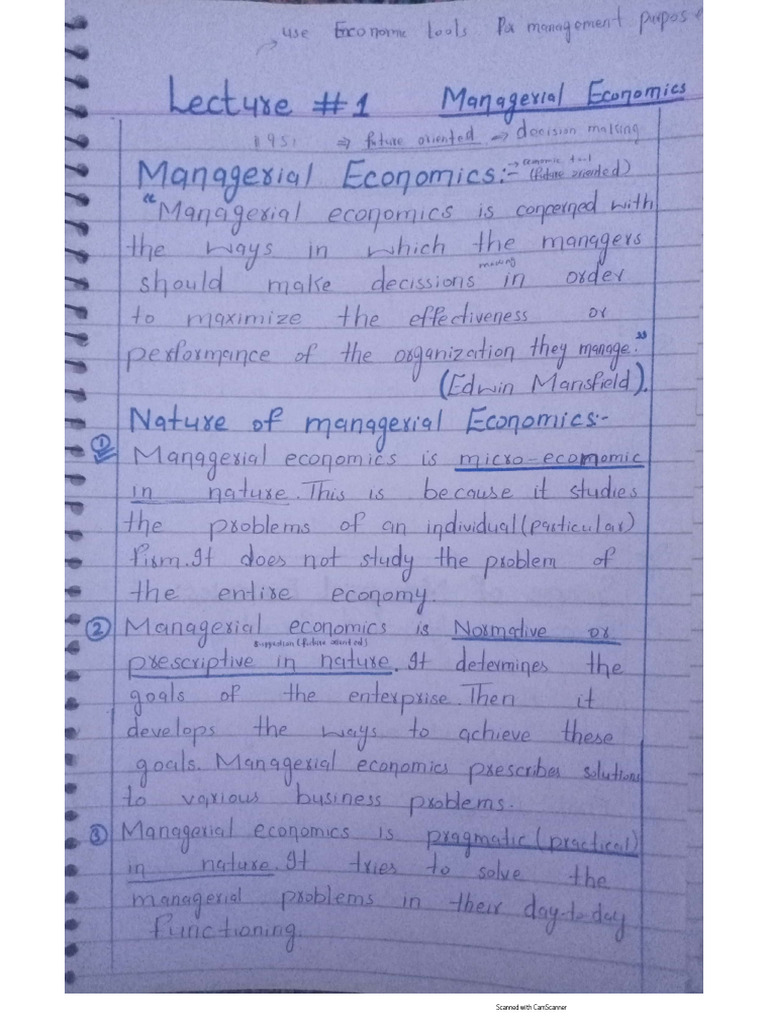 use Economic tools For management purpose
Lecture #1 Managerial Economics
1951 ⇒ future oriented → decision making
Managerial Economics:- → economic tool (future oriented)
"Managerial economics is concerned with
the ways in which the managers
should make decissions in order
to maximize the effectiveness or
performance of the organization they manage."
(Edwin Mansfield).
Nature of managerial Economics:-
① Managerial economics is micro-economic
in nature. This is because it studies
the problems of an individual (particular)
firm. It does not study the problem of
the entire economy.
② Managerial economics is Normative or
suggestion (future oriented)
prescriptive in nature. It determines the
goals of the enterprise. Then it
develops the ways to achieve these
goals. Managerial economics prescribes solutions
to various business problems.
③ Managerial economics is pragmatic (practical)
in nature. It tries to solve the
managerial problems in their day-to-day
Functioning.
Scanned with CamScanner